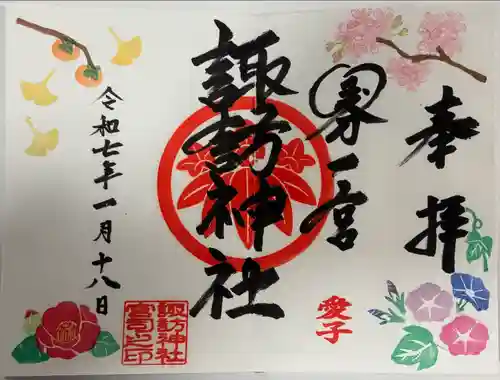 奉拝
第一宮
諏訪神社
愛子
令和七年一月十八日
諏訪神社
宮司之印